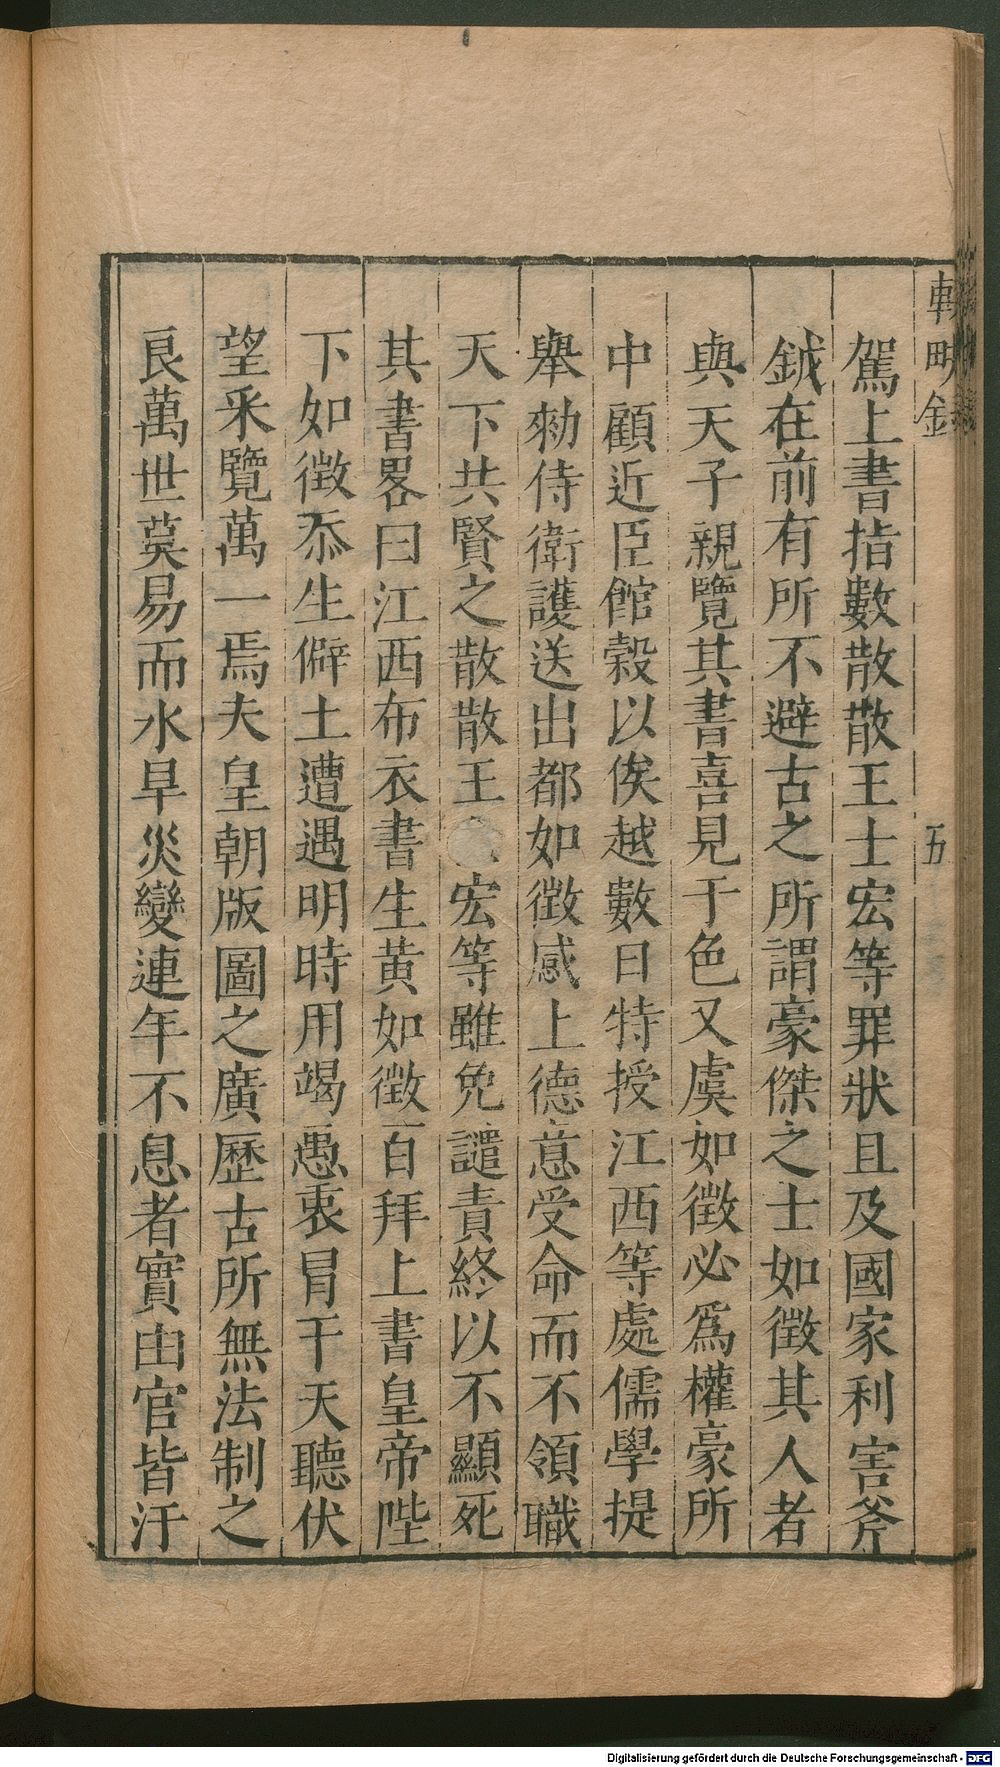 駕上書指數散散王士宏等罪狀且及國家利害斧
鉞在前有所不避古之所謂豪傑之士如徵其人者
與天子親覽其書喜見于色又虞如徵必爲權豪所
中顧近臣館穀以俟越數日特授江西等處儒學提
舉勑侍衛護送出都如徵感上德意受命而不領職
天下共賢之散散王宏等雖免譴責終以不顯死
其書畧曰江西布衣書生黄如徵百拜上書皇帝陛
下如徵忝生僻土遭遇明時用竭愚衷冐干天聽伏
望采覽萬一焉夫皇朝版圖之廣歷古所無法制之
良萬世莫易而水旱災變連年不息者實由官皆汙
五
Digitalisierung gefördert durch die Deutsche Forschungsgemeinschaft - DFG